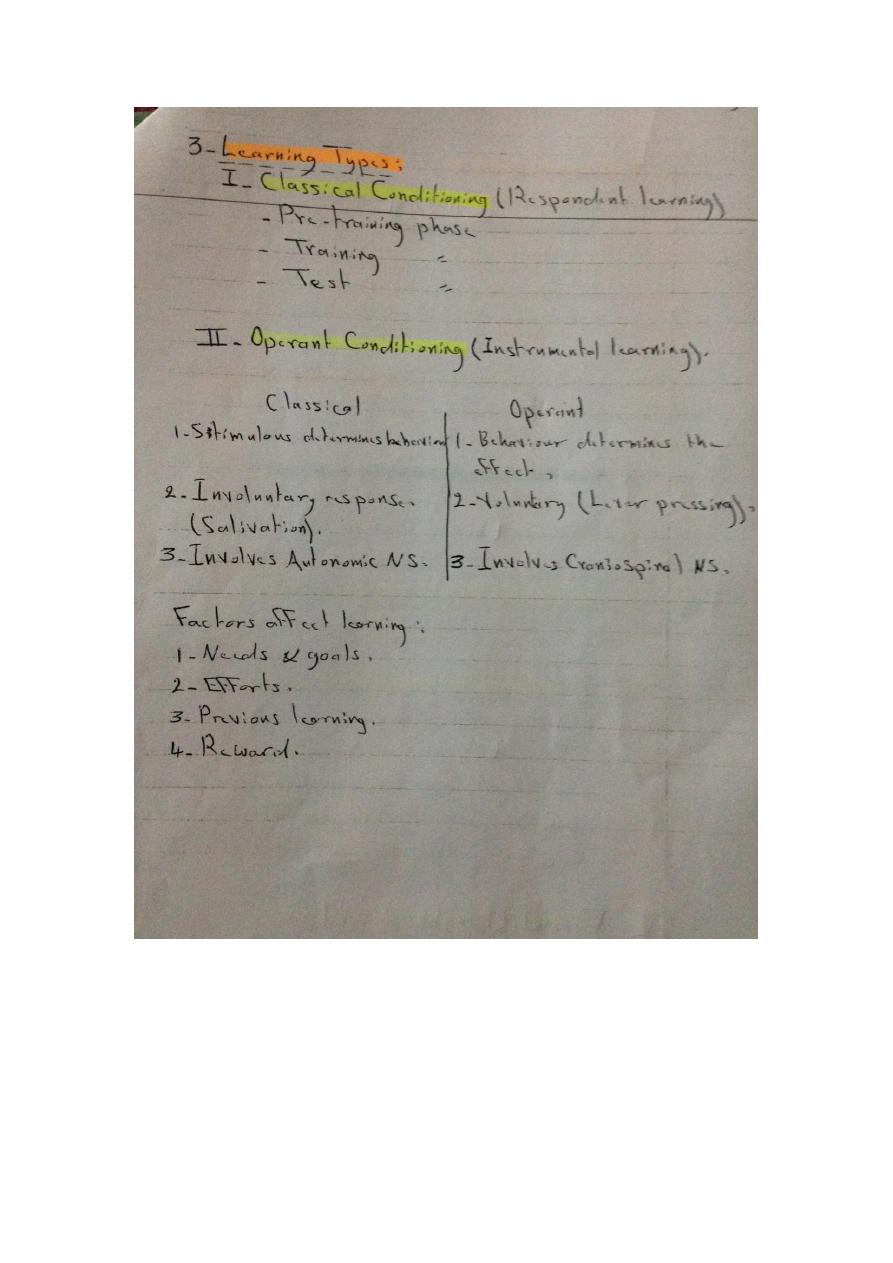 3- Learning Types:
I- Classical Conditioning (Respondent learning)
- Pre-training phase
- Training =
- Test =
II- Operant Conditioning (Instrumental learning).
Classical
1-Stimulous determines behaviour
2-Involuntary response.
(Salivation).
3-Involves Autonomic NS.
Operant
1-Behaviour determines the
effect,
2-Voluntary (Lever pressing).
3-Involves Craniospinal NS.
Factors affect learning:
1- Needs & goals.
2- Efforts.
3- Previous learning.
4- Reward.